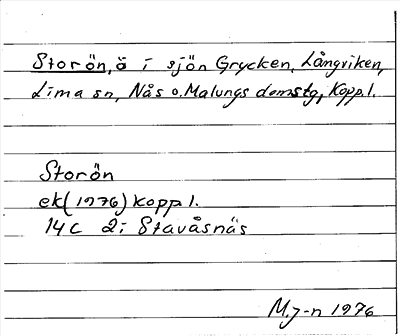 Storön, ö i sjön Grycken, Långviken,
Lima sn, Nås o. Malungs domstg, Kopp.l.
Storön
ek (1976) Kopp l.
14 C 2i Stavåsnäs
M.J-n 1976